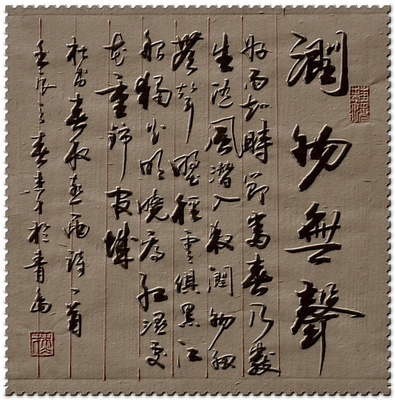 潤物無聲
好雨知時節當春乃發
生隨風潛入夜潤物細
無聲野徑雲俱黑江
船獨火明曉看紅濕處
花重錦官城
杜甫春夜喜雨詩一首
壬辰之春於青島